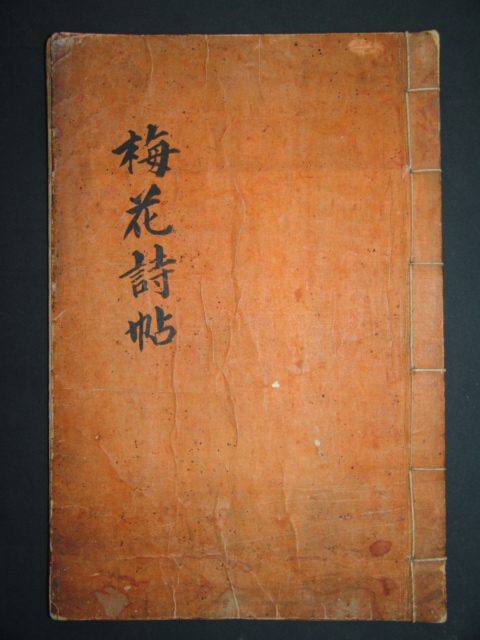 梅花詩帖